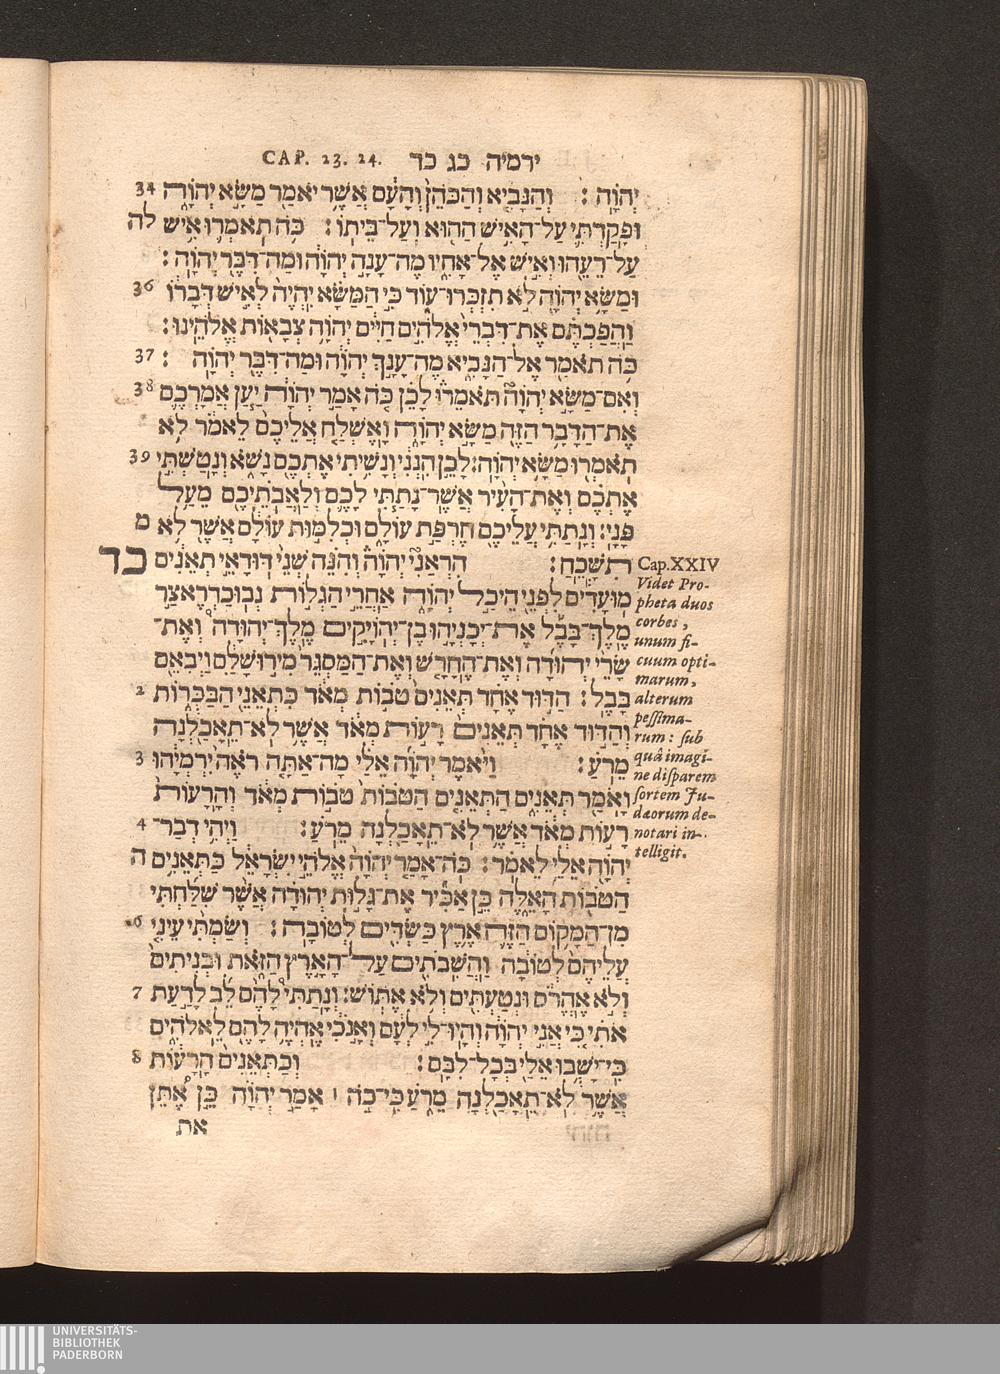 CAP. 23. 24. ירמיה כג כד
יְהוָה׃ וְהַנָּבִיא וְהַכֹּהֵן וְהָעָם אֲשֶׁר יֹאמַר מַשָּׂא יְהוָה 34
וּפָקַדְתִּי עַל־הָאִישׁ הַהוּא וְעַל־בֵּיתוֹ׃ כֹּה תֹאמְרוּ אִישׁ לה
עַל־רֵעֵהוּ וְאִישׁ אֶל־אָחִיו מֶה־עָנָה יְהוָה וּמַה־דִּבֶּר יְהוָה׃
וּמַשָּׂא יְהוָה לֹא תִזְכְּרוּ־עוֹד כִּי הַמַּשָּׂא יִהְיֶה לְאִישׁ דְּבָרוֹ 36
וַהֲפַכְתֶּם אֶת־דִּבְרֵי אֱלֹהִים חַיִּים יְהוָה צְבָאוֹת אֱלֹהֵינוּ׃
כֹּה תֹאמַר אֶל־הַנָּבִיא מֶה־עָנָךְ יְהוָה וּמַה־דִּבֶּר יְהוָה׃ 37
וְאִם־מַשָּׂא יְהוָה תֹּאמֵרוּ לָכֵן כֹּה אָמַר יְהוָה יַעַן אֲמָרְכֶם 38
אֶת־הַדָּבָר הַזֶּה מַשָּׂא יְהוָה וָאֶשְׁלַח אֲלֵיכֶם לֵאמֹר לֹא
תֹאמְרוּ מַשָּׂא יְהוָה׃ לָכֵן הִנְנִי וְנָשִׁיתִי אֶתְכֶם נָשֹׁא וְנָטַשְׁתִּי 39
אֶתְכֶם וְאֶת־הָעִיר אֲשֶׁר־נָתַתִּי לָכֶם וְלַאֲבֹתֵיכֶם מֵעַל
פָּנָי׃ וְנָתַתִּי עֲלֵיכֶם חֶרְפַּת עוֹלָם וּכְלִמּוּת עוֹלָם אֲשֶׁר לֹא מ
תִשָּׁכֵחַ׃ הִרְאַנִי יְהוָה וְהִנֵּה שְׁנֵי דּוּדָאֵי תְאֵנִים כד
מוּעָדִים לִפְנֵי הֵיכַל יְהוָה אַחֲרֵי הַגְלוֹת נְבוּכַדְרֶאצַּר
מֶלֶךְ־בָּבֶל אֶת־יְכָנְיָהוּ בֶן־יְהוֹיָקִים מֶלֶךְ־יְהוּדָה וְאֶת־
שָׂרֵי יְהוּדָה וְאֶת־הֶחָרָשׁ וְאֶת־הַמַּסְגֵּר מִירוּשָׁלִַם וַיְבִאֵם
בָּבֶל׃ הַדּוּד אֶחָד תְּאֵנִים טֹבוֹת מְאֹד כִּתְאֵנֵי הַבַּכֻּרוֹת 2
וְהַדּוּד אֶחָד תְּאֵנִים רָעוֹת מְאֹד אֲשֶׁר לֹא־תֵאָכַלְנָה
מֵרֹעַ׃ וַיֹּאמֶר יְהוָה אֵלַי מָה־אַתָּה רֹאֶה יִרְמְיָהוּ 3
וָאֹמַר תְּאֵנִים הַתְּאֵנִים הַטֹּבוֹת טֹבוֹת מְאֹד וְהָרָעוֹת
רָעוֹת מְאֹד אֲשֶׁר לֹא־תֵאָכַלְנָה מֵרֹעַ׃ וַיְהִי דְבַר־ 4
יְהוָה אֵלַי לֵאמֹר׃ כֹּה־אָמַר יְהוָה אֱלֹהֵי יִשְׂרָאֵל כַּתְּאֵנִים ה
הַטֹּבוֹת הָאֵלֶּה כֵּן אַכִּיר אֶת־גָּלוּת יְהוּדָה אֲשֶׁר שִׁלַּחְתִּי
מִן־הַמָּקוֹם הַזֶּה אֶרֶץ כַּשְׂדִּים לְטוֹבָה׃ וְשַׂמְתִּי עֵינִי 6
עֲלֵיהֶם לְטוֹבָה וַהֲשִׁבֹתִים עַל־הָאָרֶץ הַזֹּאת וּבְנִיתִים
וְלֹא אֶהֱרֹס וּנְטַעְתִּים וְלֹא אֶתּוֹשׁ׃ וְנָתַתִּי לָהֶם לֵב לָדַעַת 7
אֹתִי כִּי אֲנִי יְהוָה וְהָיוּ־לִי לְעָם וְאָנֹכִי אֶהְיֶה לָהֶם לֵאלֹהִים
כִּי־יָשֻׁבוּ אֵלַי בְּכָל־לִבָּם׃ וְכַתְּאֵנִים הָרָעוֹת 8
אֲשֶׁר לֹא־תֵאָכַלְנָה מֵרֹעַ כִּי־כֹה ׀ אָמַר יְהוָה כֵּן אֶתֵּן
את
Cap. XXIV
Videt Pro-
pheta duos
corbes,
unum fi-
cuum opti-
marum,
alterum
pessima-
rum: sub
quâ imagi-
ne disparem
sortem Ju-
dæorum de-
notari in-
telligit.
UNIVERSITÄTS-
BIBLIOTHEK
PADERBORN